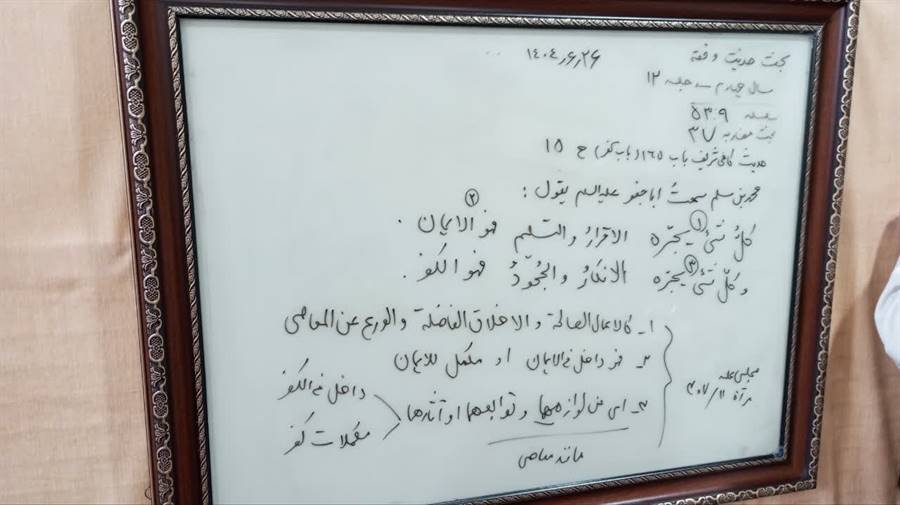 بحث حدیث و فقه
۱۴۰۴٫۶٫۲۶
سال چهارم جلسه ۱۲
مسلسل ۵۳۰۹
۳۷
حدیث کافی شریف باب ۱۶۵ (باب کفر) ح ۱۵
محمد بن مسلم سمعتُ اباجعفر علیه السلام یقول :
کلُّ شئ ① یجرّه الاقرارُ و التسلیم فهو ② الایمان .
و کلّ شئ ③ یجرّه الانکارُ والجُحودُ فهو الکفر .
۱- کالاعمال الصالحة و الاخلاق الفاضلة و الورع عن المعاصی
۲- فهو داخل فی الایمان او مکمل للایمان
۳- ای من لوازمها و توابعها او آثارها
داخل فی الکفر
مکملات کفر
مانند معاصی
مجلسی علیه
مرآة ۱۱/